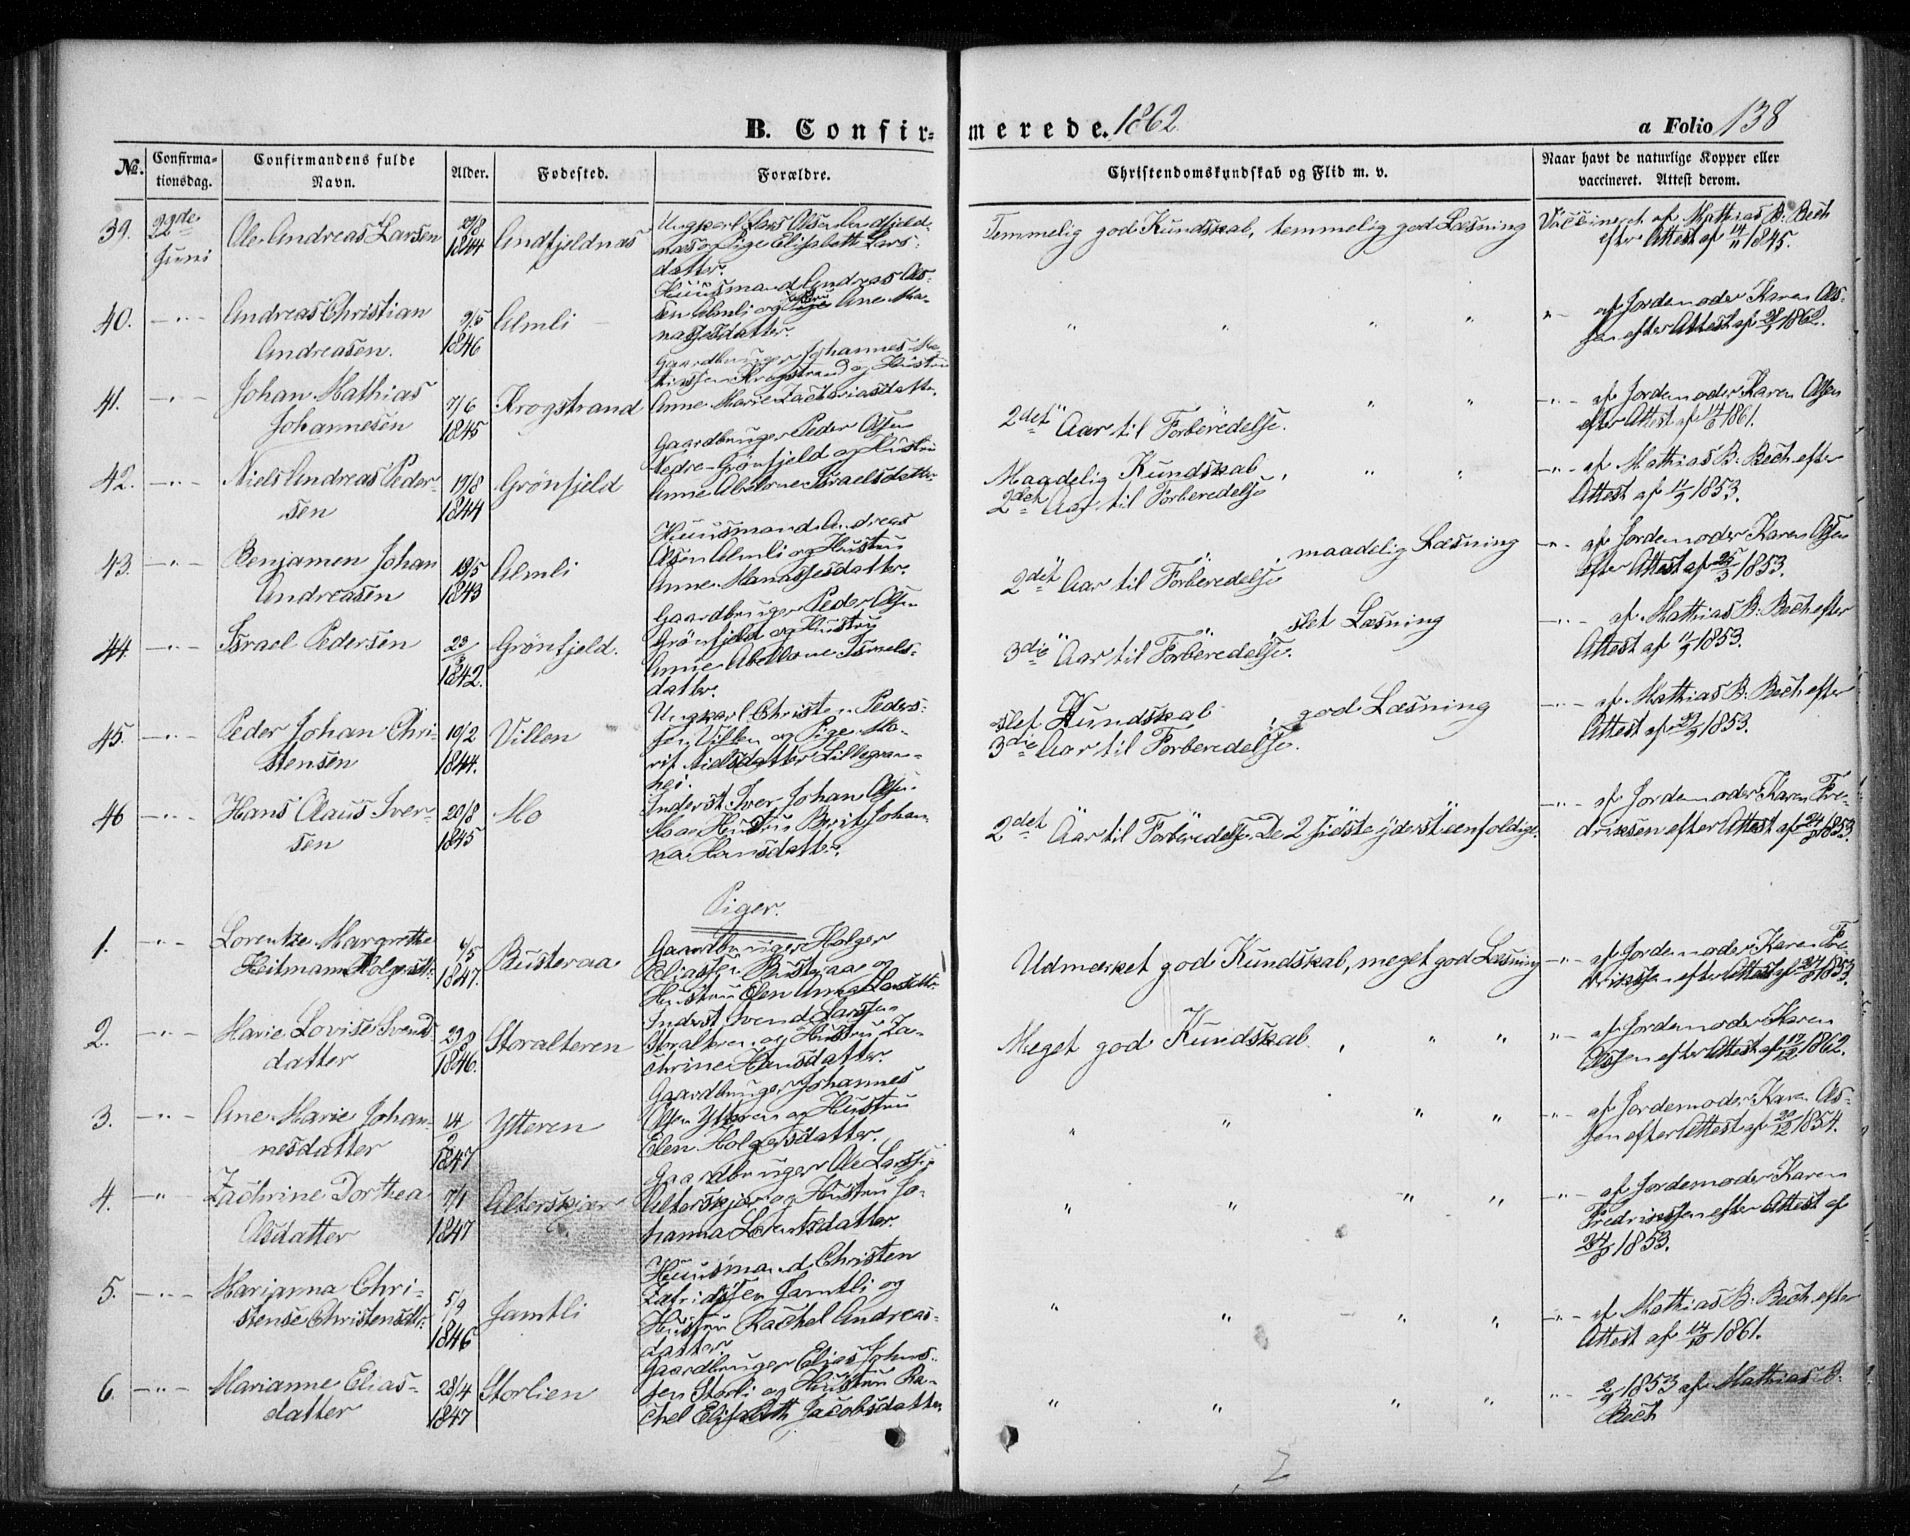 B. Confir-
merede. 1862.
a Folio 138
No.
Confirma-
tionsdag.
Confirmandens fulde
Navn.
Alder.
Fødested.
Forældre.
Christendomskundskab og Flid m. v.
Naar havt de naturlige Kopper eller
vaccineret. Attest derom.
39.
22de
Juni
Ole Andreas Larsen
1844
Andfjeldnas
Ungkarl Lars Olsen Andfjeld-
nas og Pige Elisabeth Lars-
datter.
Temmelig god Kundskab, temmelig god Læsning
Vaccineret af Mathias B. Bech
efter Attest af 14/11 1845.
40.
—"—
Andreas Christian
Andreasen.
9/5
1846
Almli
Huusmand Andreas Ol-
sen Almli og Ane Ma-
nassesdatter.
" " " "
"— af Jordemoder Karen Ol-
sen efter Attest af 1862.
41.
—"—
Johan Mathias
Johannesen
7/6
1845
Krogstrand
Gaardbruger Johannes Ma-
thissen Krogstrand og Hustru
Anne Marie Zachariasdatter.
2det Aar til Forberedelse. " "
—"— af Jordemoder Karen Olsen
efter Attest af 1861.
42.
—"—
Niels Andreas Peder-
sen
19/8
1844
Grönfjeld
Gaardbruger Peder Olsen
Nedre-Grönfjeld og Hustru
Anne Abelone Israelsdatter.
Maadelig Kundskab, " "
2det Aar til Forberedelse
—"— af Mathias B. Bech efter
Attest af 11/9 1853.
43.
—"—
Benjamen Johan
Andreasen
19/5
1843
Almli
Huusmand Andreas
Olsen Almli og Hustru
Anne Manassesdatter.
" , maadelig Læsning
2det Aar til Forberedelse
—"— af Jordemoder Karen Olsen
efter Attest af 25/3 1853.
44.
—"—
Israel Pedersen
1842.
Grönfjeld.
Gaardbruger Peder Olsen
Grönfjeld og Hustru
Anne Abellone Israels-
datter.
" " slet Læsning
3die Aar til Forberedelse.
—"— af Mathias B. Bech efter
Attest af 11/9 1853.
45.
—"—
Peder Johan Chri-
stensen
19/2
1844.
Villen
Ungkarl Christen Peders-
sen Villen og Pige Ma-
rit Nielsdatter Lillegran-
hei.
slet Kundskab, god Læsning
3die Aar til Forberedelse.
—"— af Mathias B. Bech efter
Attest af 1853.
46
—"—
Hans Claus Iver-
sen
20/8
1845
Mo
Inderst Iver Johan Olsen
Mo og Hustru Berit Johan-
na Hansdatter.
2det Aar til Forberedelse. De 2 sidste yderst eenfoldige.
—"— af Jordemoder Karen Fre-
driksen efter Attest af 1853.
Piger.
1.
—"—
Lorentze Margrethe
Heitmann Holgersdtr.
6/5
1847.
Busteraa
Gaardbruger Holger
Eliassen Busteraa og
Hustru Elen Anna Larsdtr.
Udmærket god Kundskab, meget god Læsning
—"— af Jordemoder Karen Fre-
driksen efter Attest af 1853.
2.
—"—
Marie Lovise Svends-
datter
29/8
1846.
Storalteren
Inderst Svend Larssen
Storalteren og Hustru Za-
chrine Hansdatter.
Meget god Kundskab, " "
"— af Jordemoder Karen
Olsen efter Attest af 1862.
3.
—"—
Ane Marie Johan-
nesdatter
1847
Ytteren
Gaardbruger Johannes
Olsen Ytteren og Hustru
Elen Holgersdatter.
" " " "
"— af Jordemoder Karen Ol-
sen efter Attest af 1854.
4.
—"
Zachrine Dorthea
Olsdatter
7/1
1847
Alterskjær
Gaardbruger Ole Larssen
Alterskjær og Hustru Jo-
hanna Lorentsdatter.
" " " "
"— af Jordemoder Karen
Fredrikssen efter Attest af
1853.
5.
—"—
Marianna Chri-
stense Christensdtr.
5/9
1846
Jamtli
Huusmand Christen
Jamtli og
Hustru Rachel Andreas-
datter.
" " " "
—"— af Mathias B. Bech efter
Attest af 14/10 1861.
6.
—"—
Marianne Elias-
datter
28/4
1847
Storlien
Gaardbruger Elias Johns-
sen Storli og Hustru Ra-
chel Elisabeth Jacobsdatter
" " " "
"— 1853 af Mathias B.
Bech